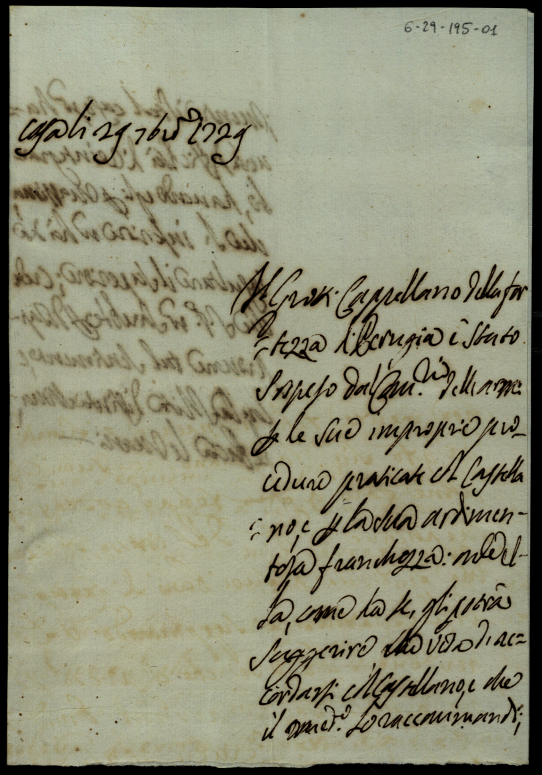 6-29-195-01
Casali 29 7bre 1729
Il Gros. Cappellano della for
tezza di Perugia è stato
sospeso dal Com.rio delle arme
p le sue improprie pro-
cedure praticate col Castella
no, e p la sua ardimen-
tosa franchezza: onde El-
la, come da se, gli potrà
suggerire una via di ac-
cordarsi col Castellano, e che
il med.o lo raccommandi,